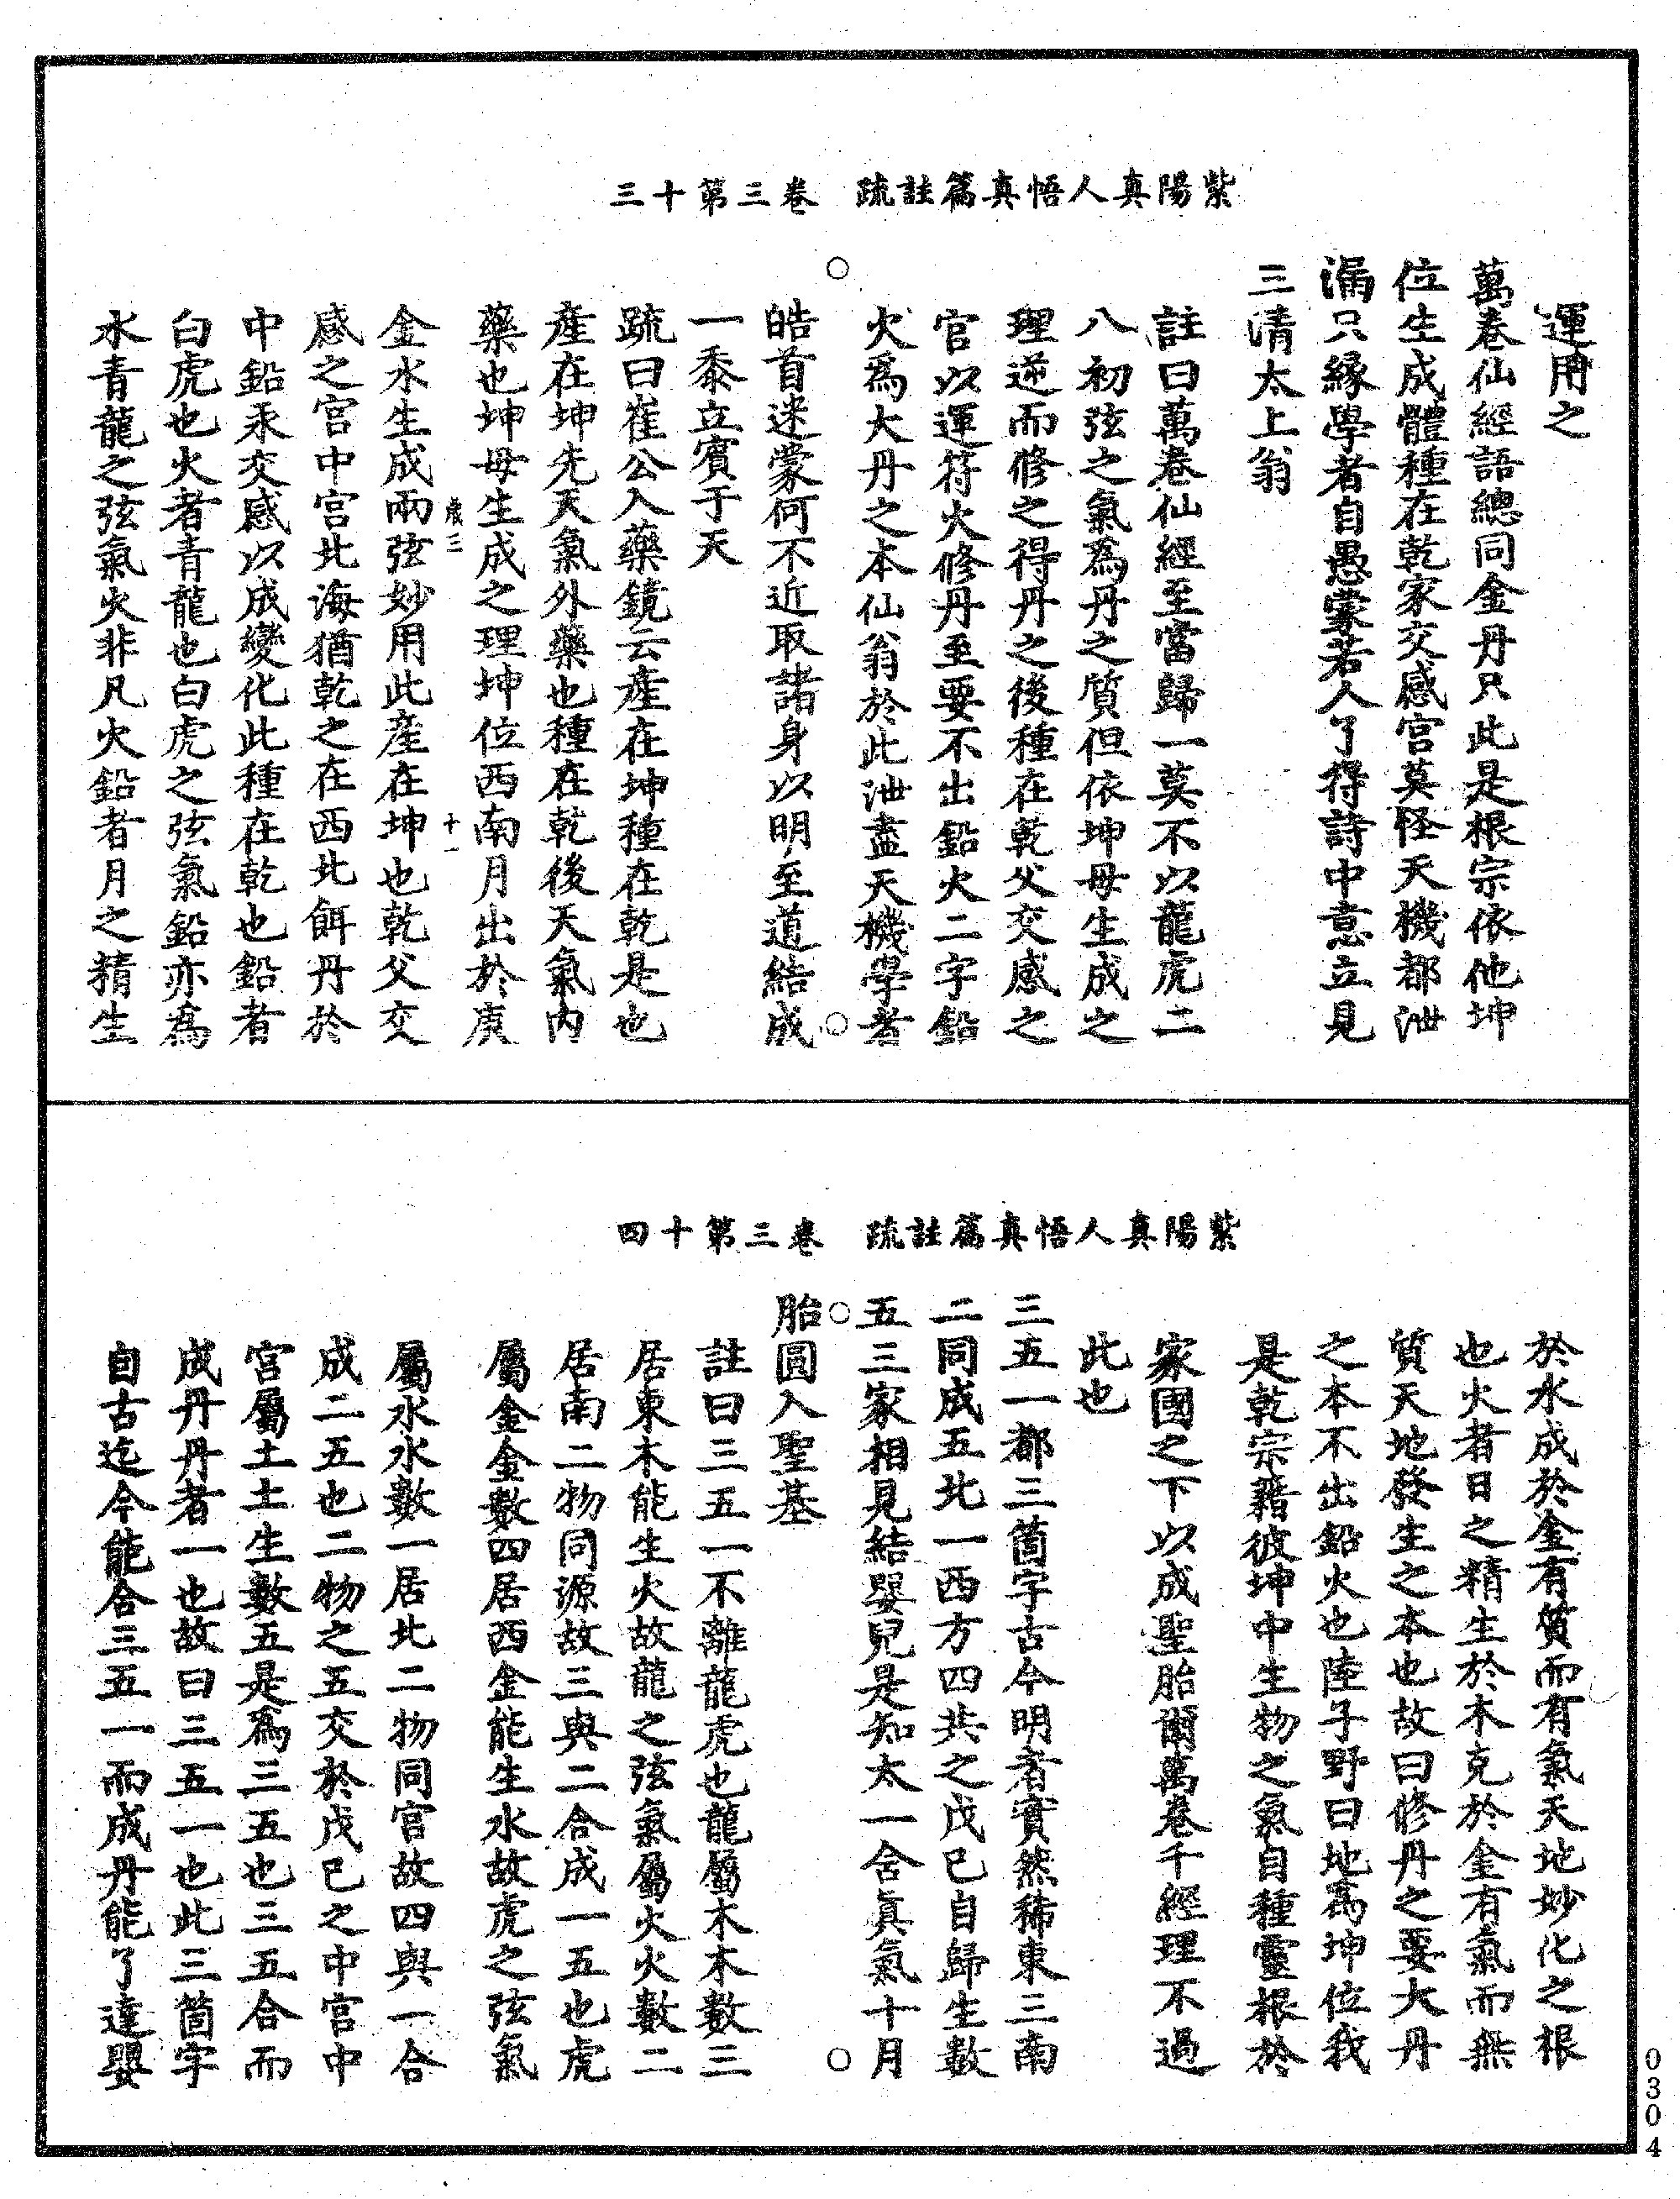 紫陽真人悟真篇註疏　卷三第十三
運用之
萬卷仙經語總同金丹只此是根宗依他坤
位生成體種在乾家交感宫莫怪天機都泄
漏只緣學者自愚蒙若人了得詩中意立見
三清太上翁
註曰萬卷仙經至當歸一莫不以龍虎二
八初弦之氣為丹之質但依坤母生成之
理逆而修之得丹之後種在乾父交感之
官以運符火修丹至要不出鉛火二字鉛
火為大丹之本仙翁於此泄盡天機學者
皓首迷蒙何不近取諸身以明至道結成
一黍立賓于天
疏曰崔公入藥鏡云産在坤種在乾是也
産在坤先天氣外藥也種在乾後天氣内
藥也坤母生成之理坤位西南月出於庚
歲三　十一
金水生成兩弦妙用此産在坤也乾父交
感之宫中宫北海猶乾之在西北餌丹於
中鉛汞交感以成變化此種在乾也鉛者
白虎也火者青龍也白虎之弦氣鉛亦為
水青龍之弦氣火非凡火鉛者月之精生
紫陽真人悟真篇註疏　卷三第十四
於水成於金有質而有氣天地妙化之根
也火者日之精生於木克於金有氣而無
質天地發生之本也故曰修丹之要大丹
之本不出鉛火也陸子野曰地為坤位我
是乾宗藉彼坤中生物之氣自種靈根於
家國之下以成聖胎爾萬卷千經理不過
此也
三五一都三箇字古今明者實然稀東三南
二同成五北一西方四共之戊己自歸生數
五三家相見結嬰兒是知太一含真氣十月
胎圓入聖基
註曰三五一不離龍虎也龍屬木木數三
居東木能生火故龍之弦氣屬火火數二
居南二物同源故三與二合成一五也虎
屬金金數四居西金能生水故虎之弦氣
屬水水數一居北二物同宫故四與一合
成二五也二物之五交於戊己之中宫中
宫屬土土生數五是為三五也三五合而
成丹丹者一也故曰三五一也此三箇字
自古迄今能合三五一而成丹能了達嬰
0304